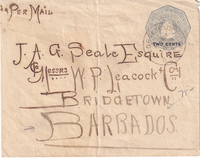 Per Mail
TWO CENTS
J.A.G. Seale Esquire
Messrs W.P. Leacock & Coy
Bridgetown
Barbados.